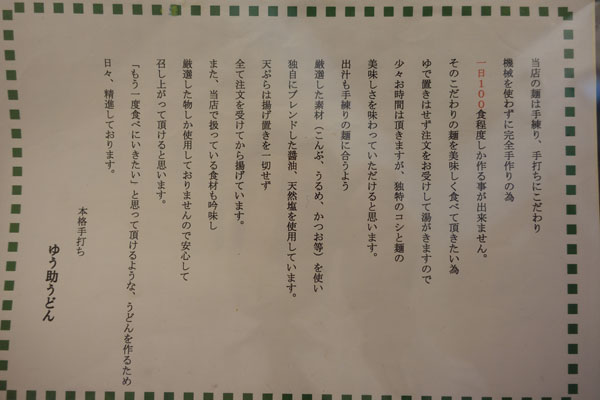 当店の麺は手練り、手打ちにこだわり
機械を使わずに完全手作りの為
一日１００食程度しか作る事が出来ません。
そのこだわりの麺を美味しく食べて頂きたい為
ゆで置きはせず注文をお受けして湯がきますので
少々お時間は頂きますが、独特のコシと麺の
美味しさを味わっていただけると思います。
出汁も手練りの麺に合うよう
厳選した素材（こんぶ、うるめ、かつお等）を使い
独自にブレンドした醤油、天然塩を使用しています。
天ぷらは揚げ置きを一切せず
全て注文を受けてから揚げています。
また、当店で扱っている食材も吟味し
厳選した物しか使用しておりませんので安心して
召し上がって頂けると思います。
「もう一度食べにいきたい」と思って頂けるような、うどんを作るため
日々、精進しております。
本格手打ち
ゆう助うどん